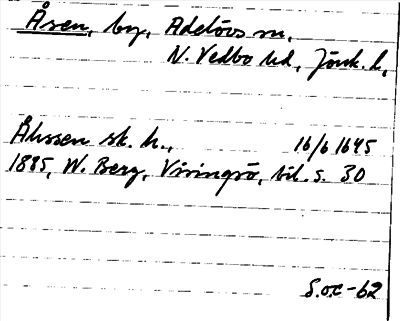 Åsen, by, Adelövs sn,
N. Vedbo hd, Jönk. l,
Åhssen sk. h., 16/6 1645
1885, W. Berg, Visingsö, bil. s. 30
S.o.c-62